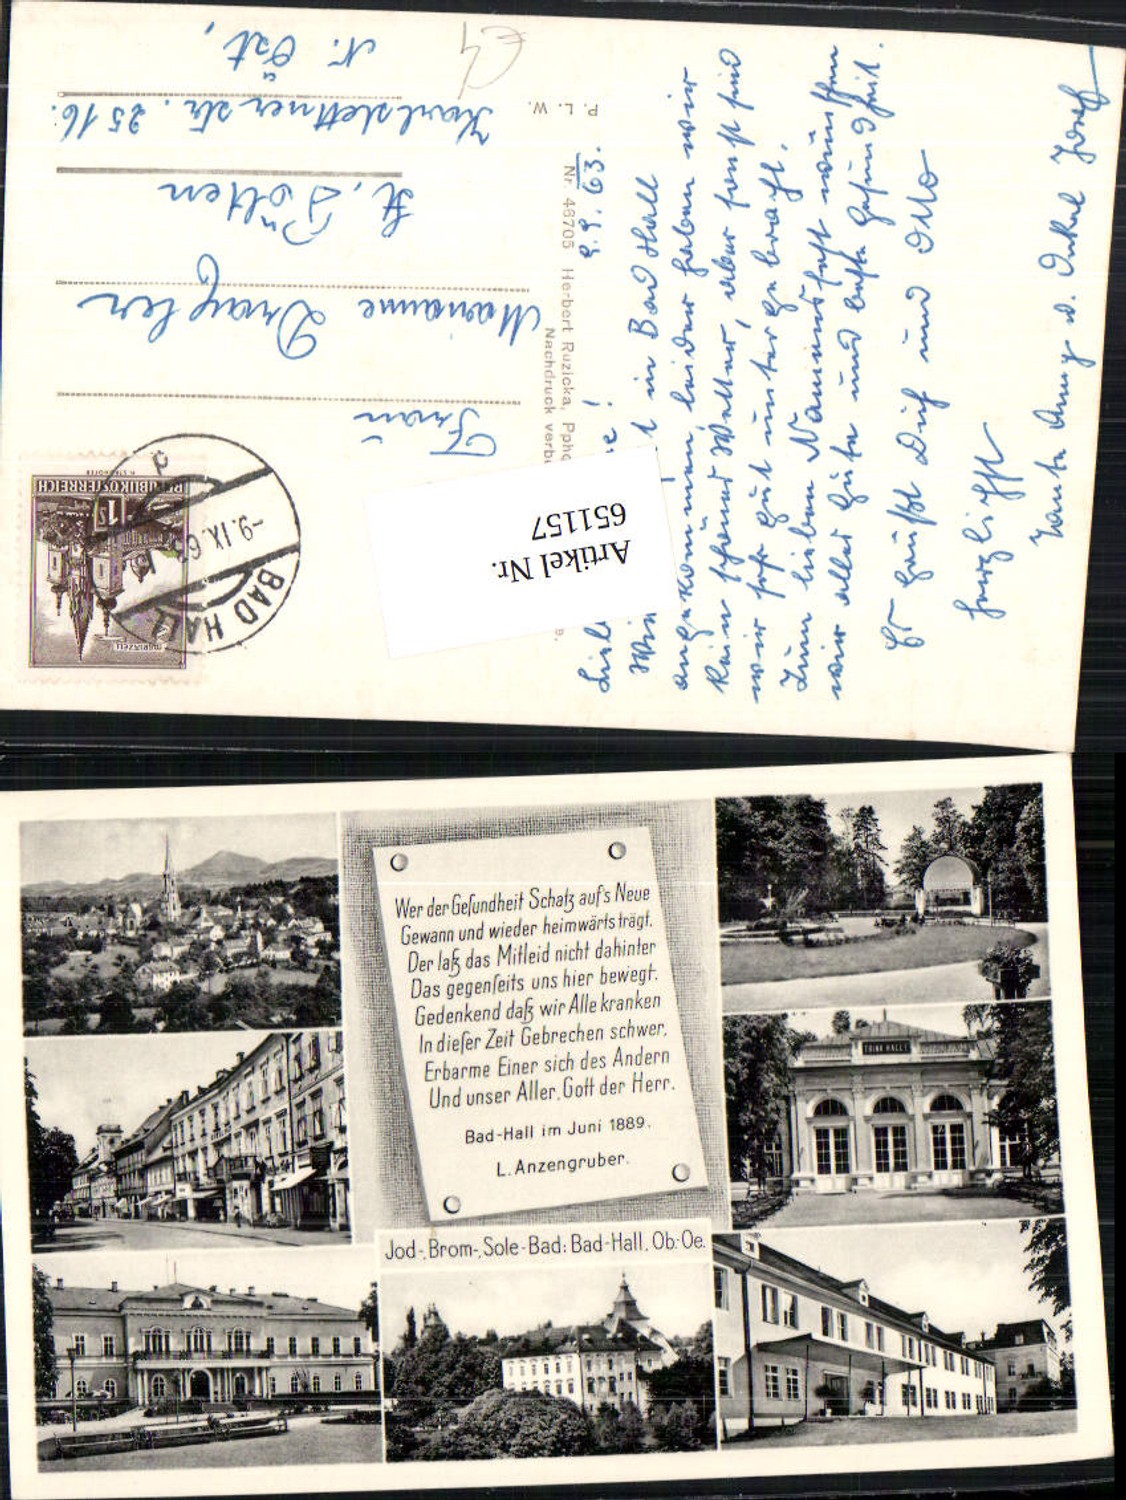 N. Öst,
Karlstettner str. 25 16.
St. Pölten
Marianne
Frau
REPUBLIK ÖSTERREICH
1 S
MARIAZELL
-9.IX.63
BAD HALL
P. L. W.
Nr. 46705 Herbert Ruzicka,
Nachdruck
Artikel Nr.
651157
9.9.63.
in Bad Hall
angekommen, leider haben wir
kein schönes Wetter, aber sonst sind
wir sehr gut untergebracht.
Zum lieben Namensfest wünschen
wir alles Gute und beste Gesundheit.
Es grüßt Dich und Otto
herzlichst
Tante Anny u. Onkel Josef
Wer der Gesundheit Schatz auf's Neue
Gewann und wieder heimwärts trägt.
Der laß das Mitleid nicht dahinter
Das gegenseits uns hier bewegt.
Gedenkend daß wir Alle kranken
In dieser Zeit Gebrechen schwer,
Erbarme Einer sich des Andern
Und unser Aller, Gott der Herr.
Bad-Hall im Juni 1889.
L. Anzengruber.
TRINKHALLE
Jod-, Brom-, Sole-Bad: Bad-Hall, Ob.-Oe.